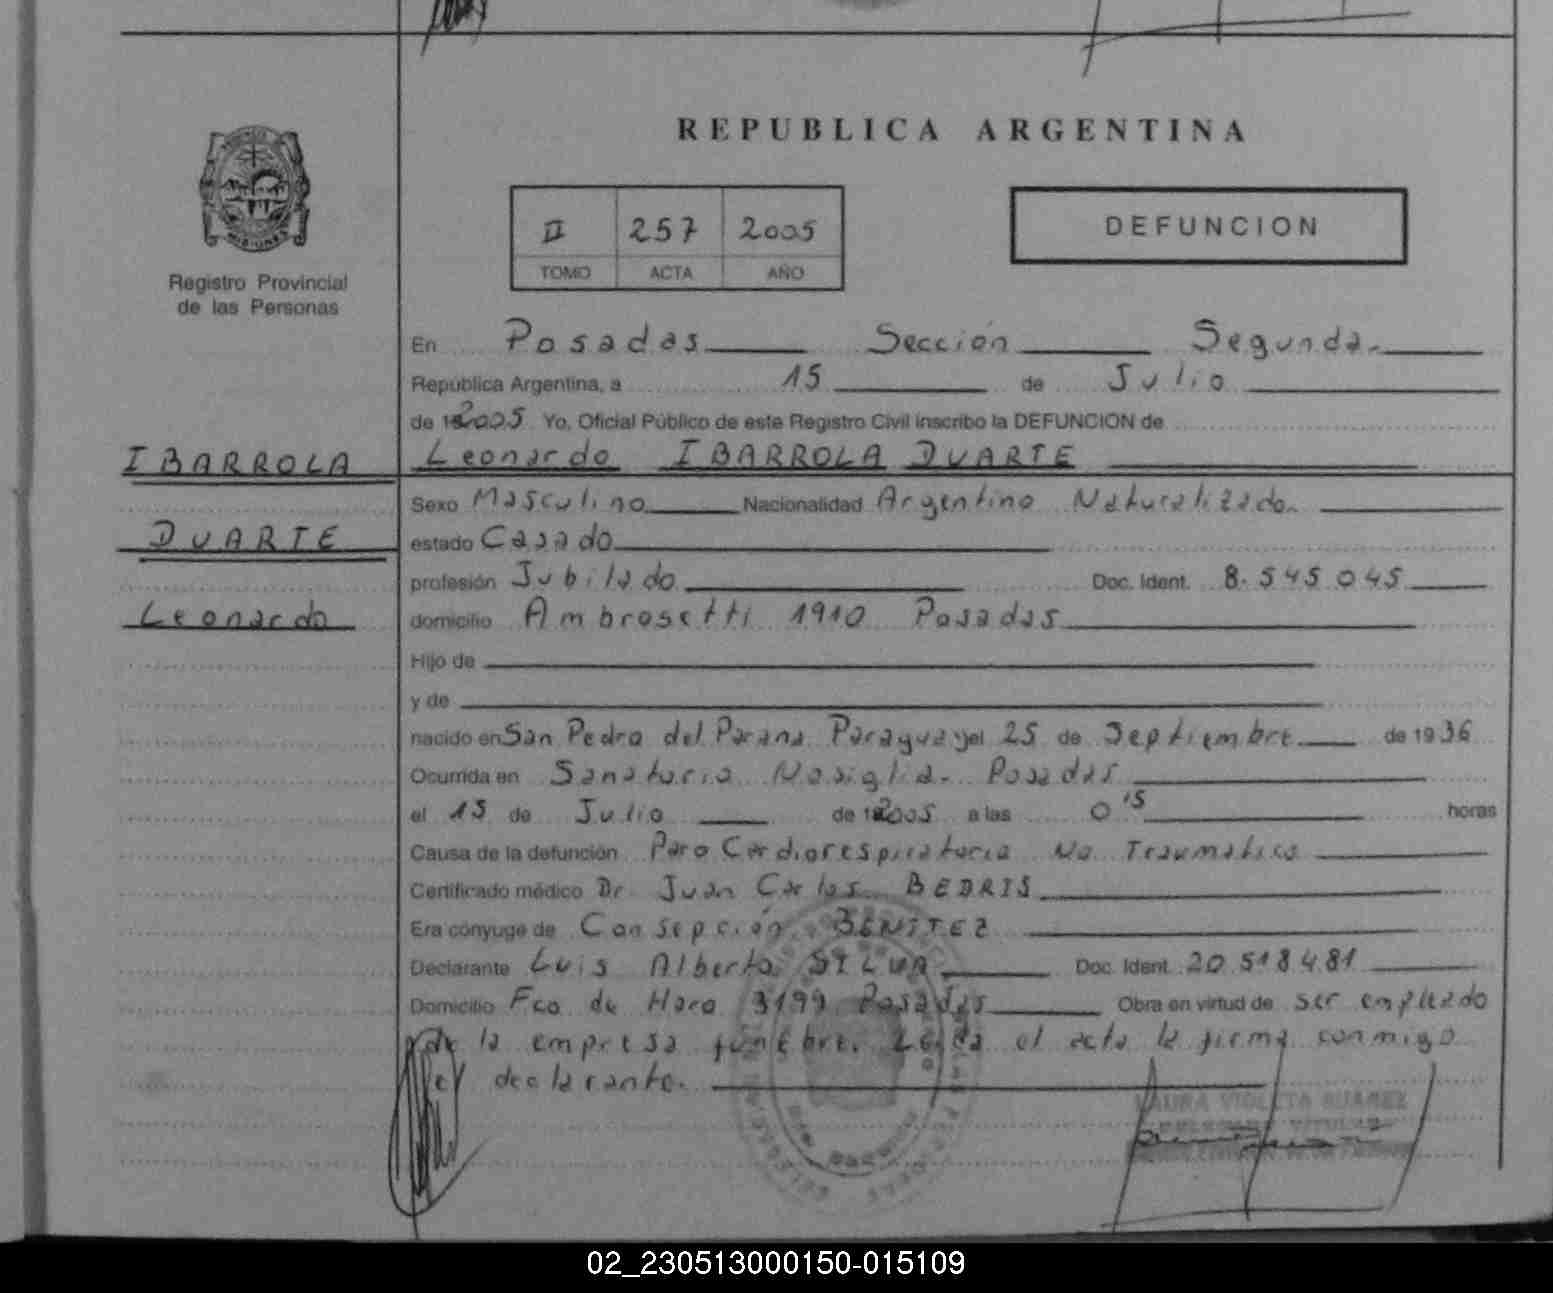 REPUBLICA ARGENTINA
MISIONES
Registro Provincial
de las Personas
II 257 2005
TOMO ACTA AÑO
DEFUNCION
En Posadas Sección Segunda.
República Argentina, a 15 de Julio
de 2005 Yo, Oficial Público de este Registro Civil inscribo la DEFUNCION de
IBARROLA
DUARTE
Leonardo
Leonardo IBARROLA DUARTE
Sexo Masculino Nacionalidad Argentino Naturalizado.
estado Casado
profesión Jubilado Doc. Ident. 8.545.045
domicilio Ambrosetti 1910 Posadas
Hijo de
y de
nacido en San Pedro del Parana Paraguay el 25 de Septiembre de 1936
Ocurrida en Sanatorio Nosiglia. Posadas
el 15 de Julio de 2005 a las 0'15 horas
Causa de la defunción Paro Cardiorespiratorio No Traumatico
Certificado médico Dr. Juan Carlos BEDRIS
Era cónyuge de Consepción BENITEZ
Declarante Luis Alberto SILVA Doc. Ident. 20.518.481
Domicilio Fco. de Haro 3199 Posadas Obra en virtud de ser empleado
de la empresa funebre. Leida el acta la firma conmigo
el declarante.
LAURA VIOLETA SUAREZ
02_230513000150-015109